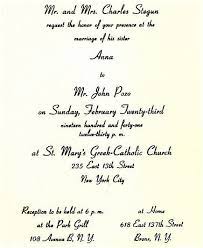 Mr. and Mrs. Charles Stogun
request the honor of your presence at the
marriage of his sister
Anna
to
Mr. John Pozo
on Sunday, February Twenty-third
nineteen hundred and forty-one
twelve-thirty p.m.
at St. Mary's Greek-Catholic Church
225 East 13th Street
New York City
Reception to be held at 6 p.m.
at the Park Grill
108 Avenue B, N.Y.
at Home
618 East 137th Street
Bronx, N.Y.